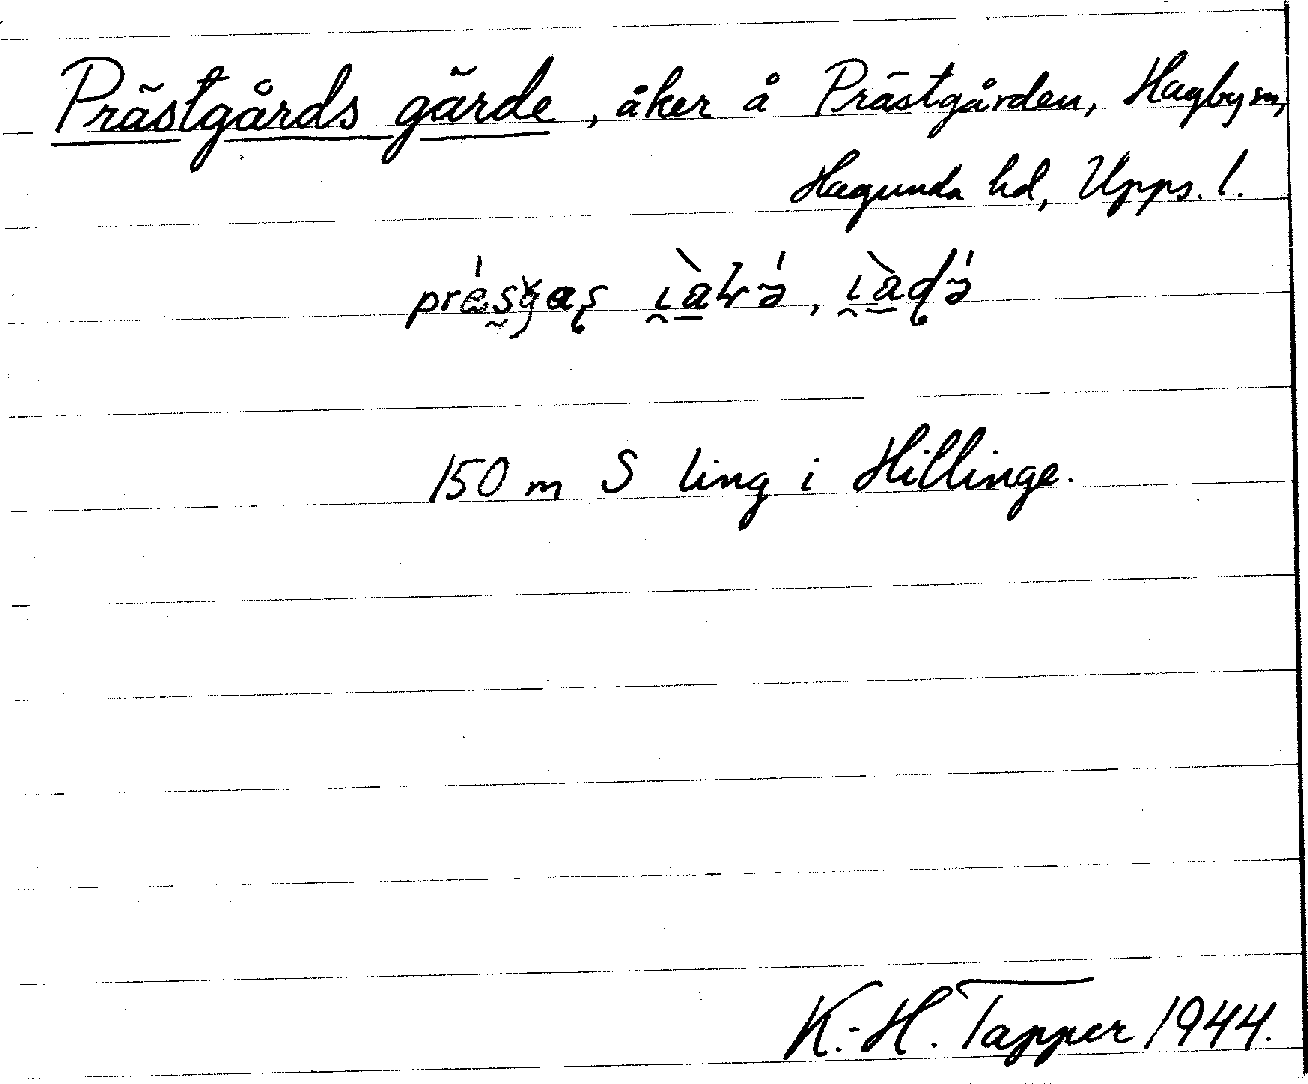 Prästgårds gärde, åker å Prästgården, Hagby sn,
Hagunda hd, Upps. l.
150 m S ling i Hillinge.
K.-H. Tapper 1944.